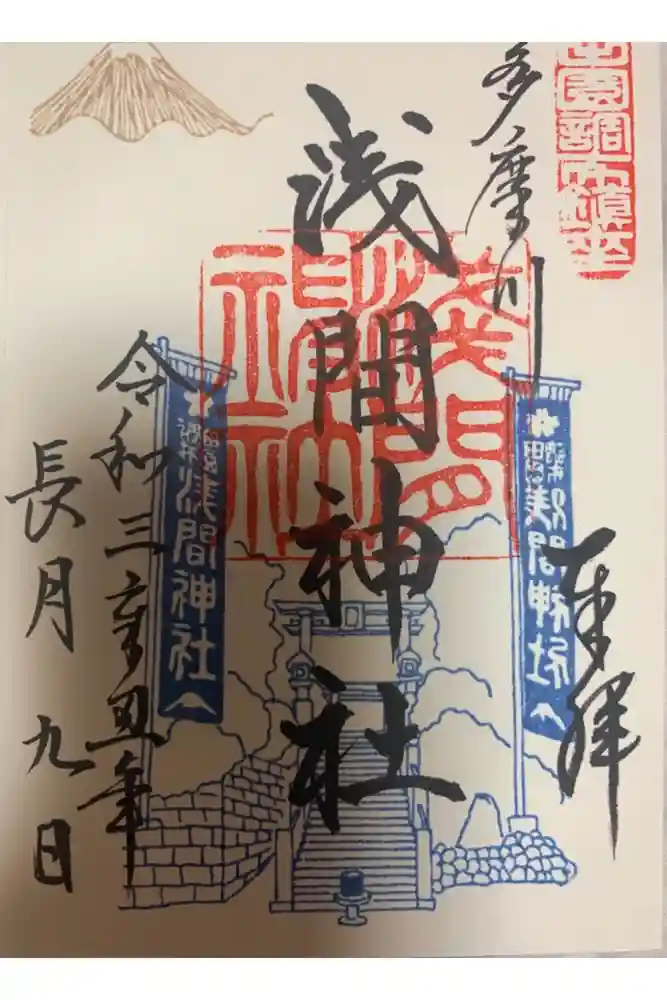 田園調布鎮座
奉拝
多摩川
浅間神社
淺間神社
浅間神社
令和三辛丑年
長月九日